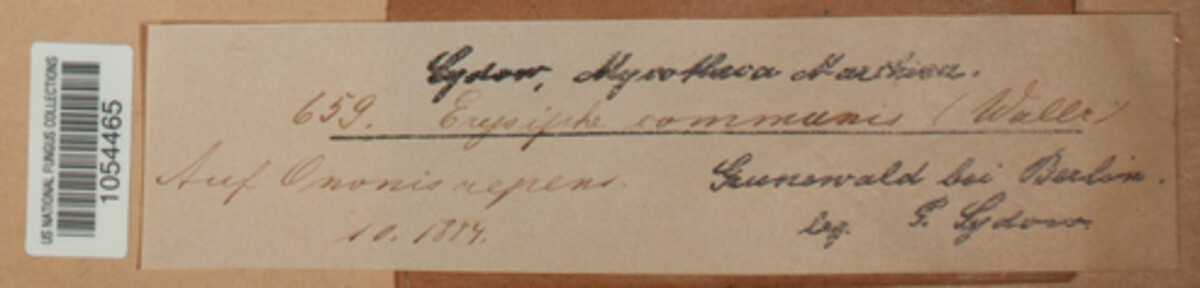 US NATIONAL FUNGUS COLLECTIONS
1054465
Sydow, Mycotheca Marchica.
659. Erysiphe communis (Wallr.)
Auf Ononis repens.
Grunewald bei Berlin.
10. 1884.
leg. P. Sydow.